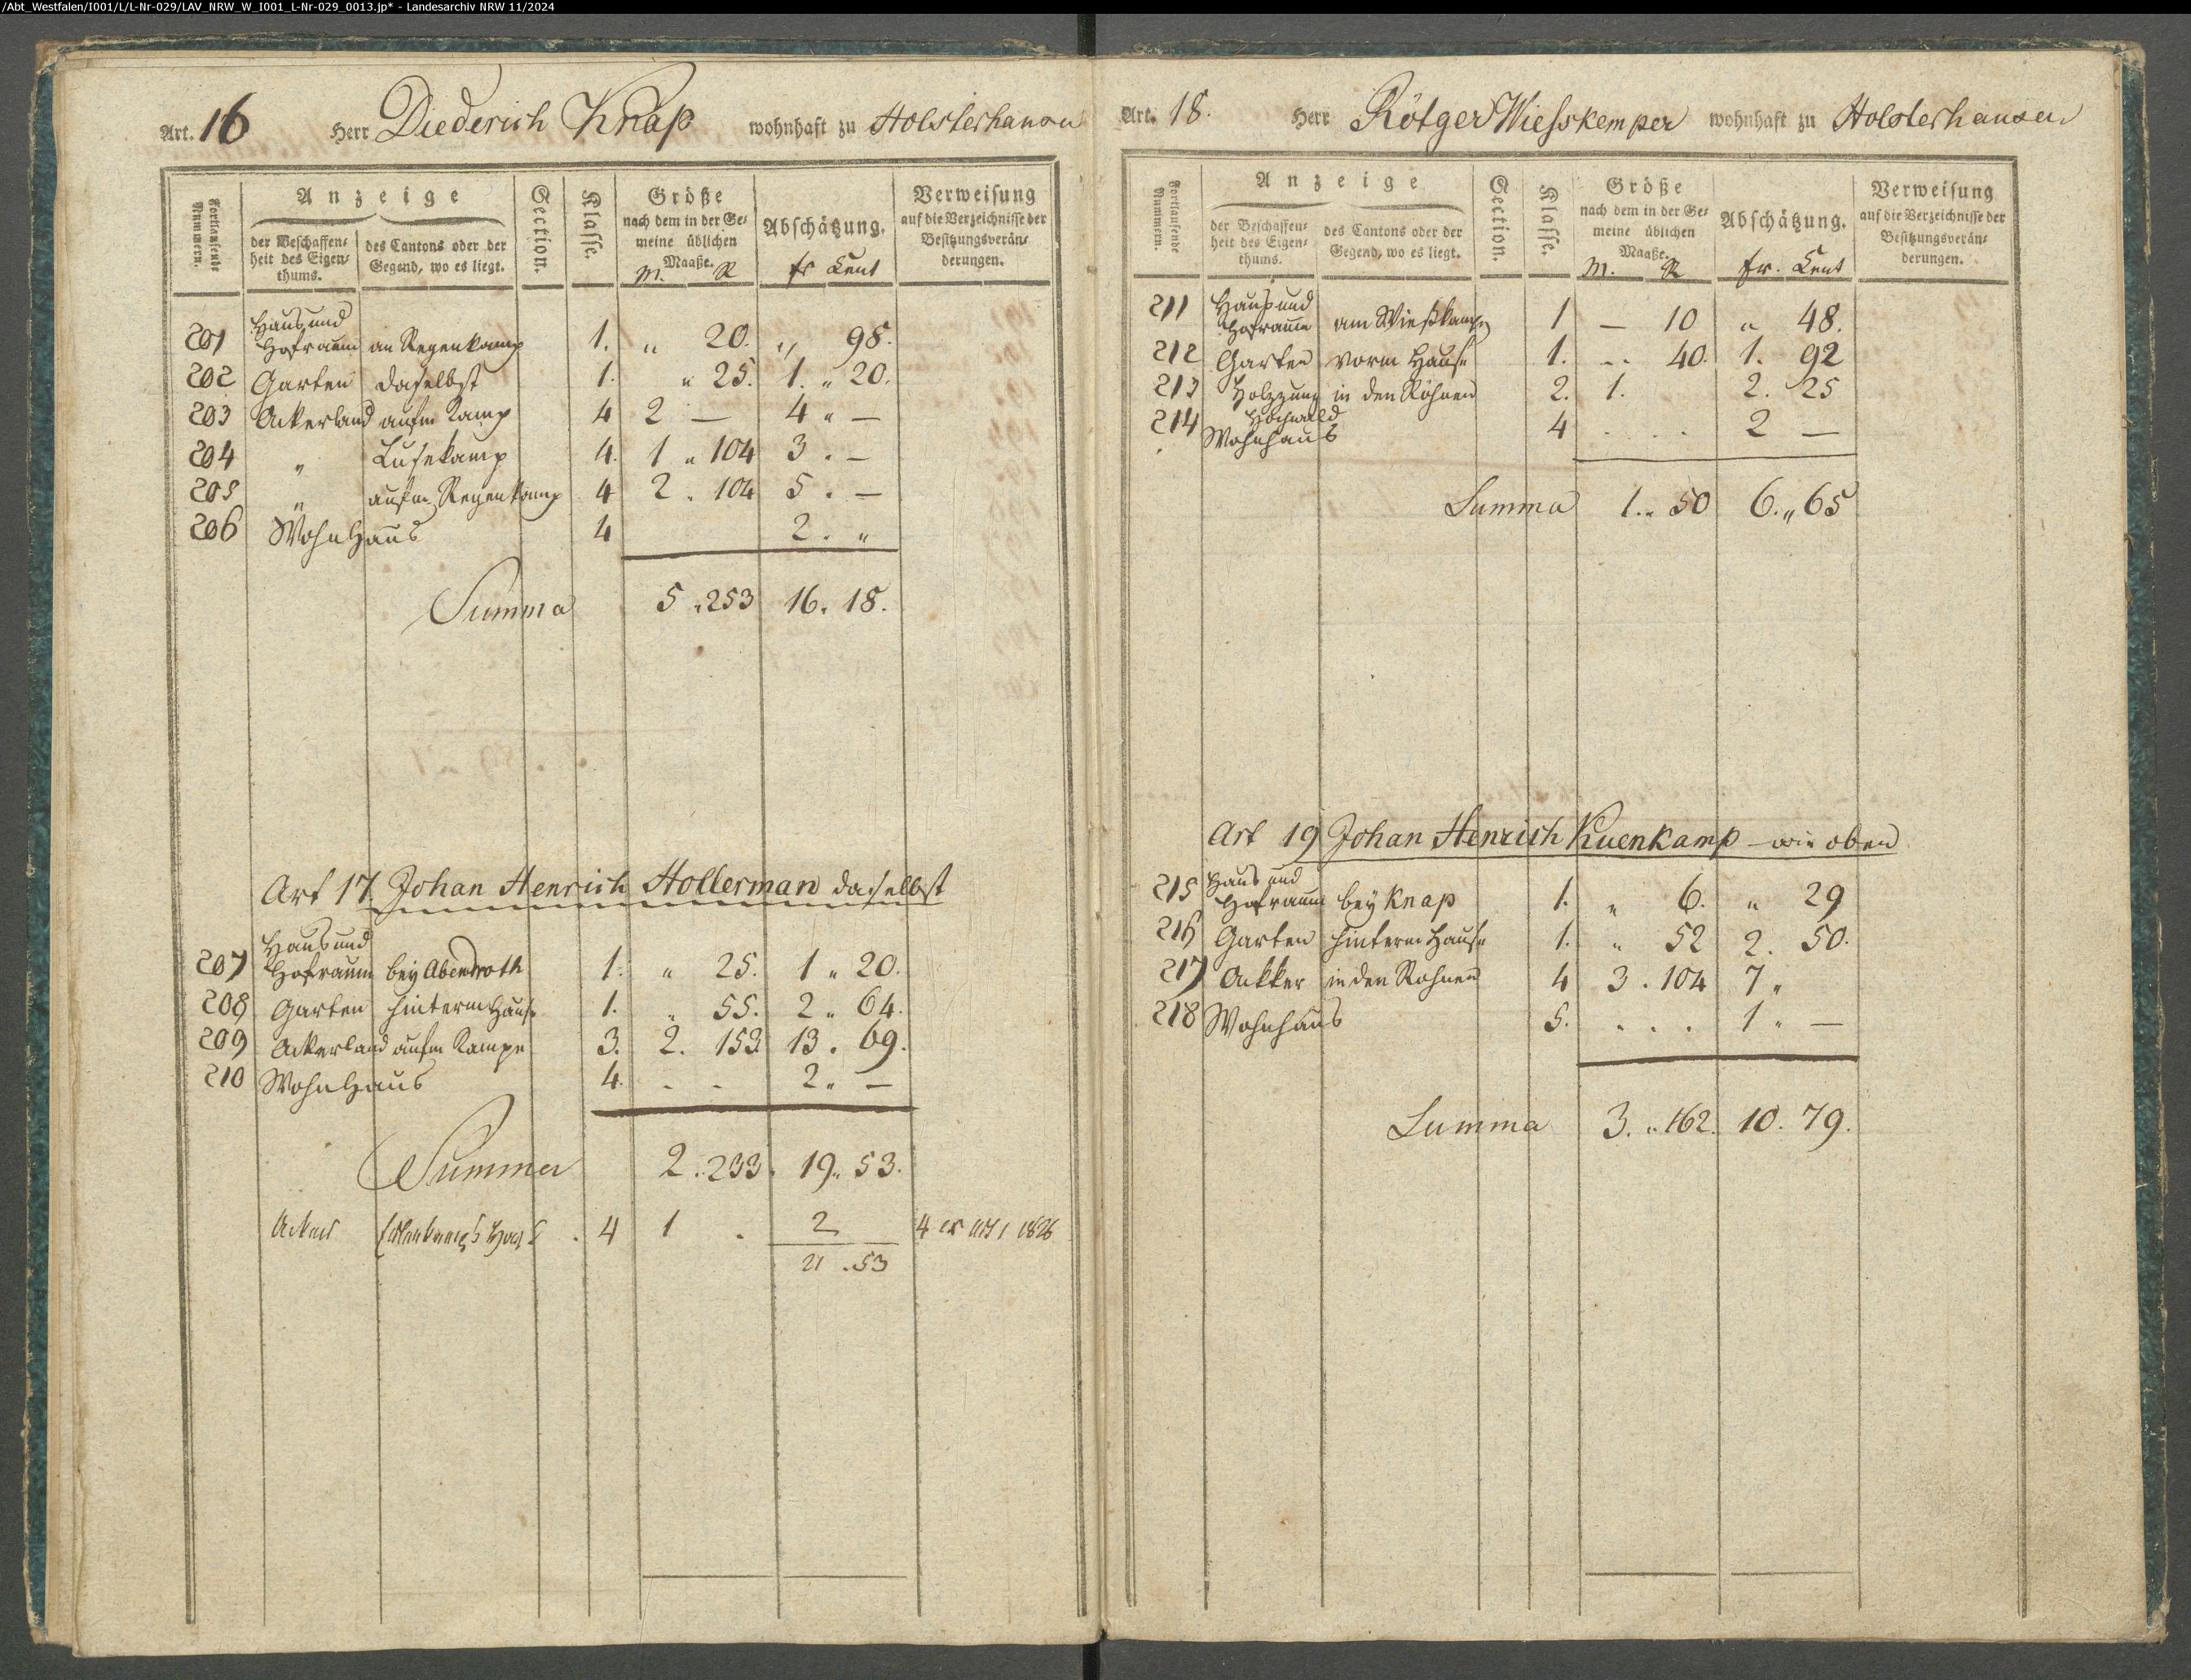 /Abt_Westfalen/I001/L/L-Nr-029/LAV_NRW_W_I001_L-Nr-029_0013.jp* - Landesarchiv NRW 11/2024
Art. 16 Herr Diederich Knap wohnhaft zu Holsterhausen
Fortlaufende Nummern.
Anzeige
der Beschaffenheit des Eigenthums.
des Cantons oder der Gegend, wo es liegt.
Section.
Klasse.
Größe
nach dem in der Gemeine üblichen Maaße.
M. R
Abschätzung.
fr Cent
Verweisung
auf die Verzeichnisse der Besitzungsveränderungen.
201 Haus und Hofraum an Regenkamp 1. " 20. " 98.
202 Garten daselbst 1. " 25. 1. " 20.
203 Ackerland aufm Kamp 4 2 — 4 " —
204 " Lusekamp 4. 1 " 104 3 . —
205 " aufm Regenkamp 4 2 . 104 5 . —
206 Wohnhaus 4 2 . "
Summa 5 . 253 16. 18.
Art 17. Johan Henrich Hollerman daselbst
207 Haus und Hofraum bey Abendroth 1. " 25. 1 " 20.
208 Garten hinterm Hause 1. " 55. 2 " 64.
209 Ackerland aufm Kampe 3. 2. 153 13 . 69.
210 Wohnhaus 4. . . 2 . —
Summa 2 . 233. 19 . 53.
4 1 . 2 1826
21 . 53
Art. 18. Herr Rötger Wiesskemper wohnhaft zu Holsterhausen
Fortlaufende Nummern.
Anzeige
der Beschaffenheit des Eigenthums.
des Cantons oder der Gegend, wo es liegt.
Section.
Klasse.
Größe
nach dem in der Gemeine üblichen Maaße.
M. R
Abschätzung.
fr. Cent
Verweisung
auf die Verzeichnisse der Besitzungsveränderungen.
211 Haus und Hofraum am Wießkamp 1 — 10 " 48.
212 Garten vorm Hause 1. .. 40. 1. 92
213 Holzzung in den Röhnen 2. 1. 2. 25
Hochwald
214 Wohnhaus 4 . . . 2 —
Summa 1. " 50 6. " 65
Art 19 Johan Henrich Kuenkamp — wie oben
215 Haus und Hofraum bey Knap 1. " 6. " 29
216 Garten hinterm Hause 1. " 52 2. 50.
217 Ackker in den Rohnen 4 3 . 104 7 "
218 Wohnhaus 5. . . . 1 " —
Summa 3. " 162. 10. 79.